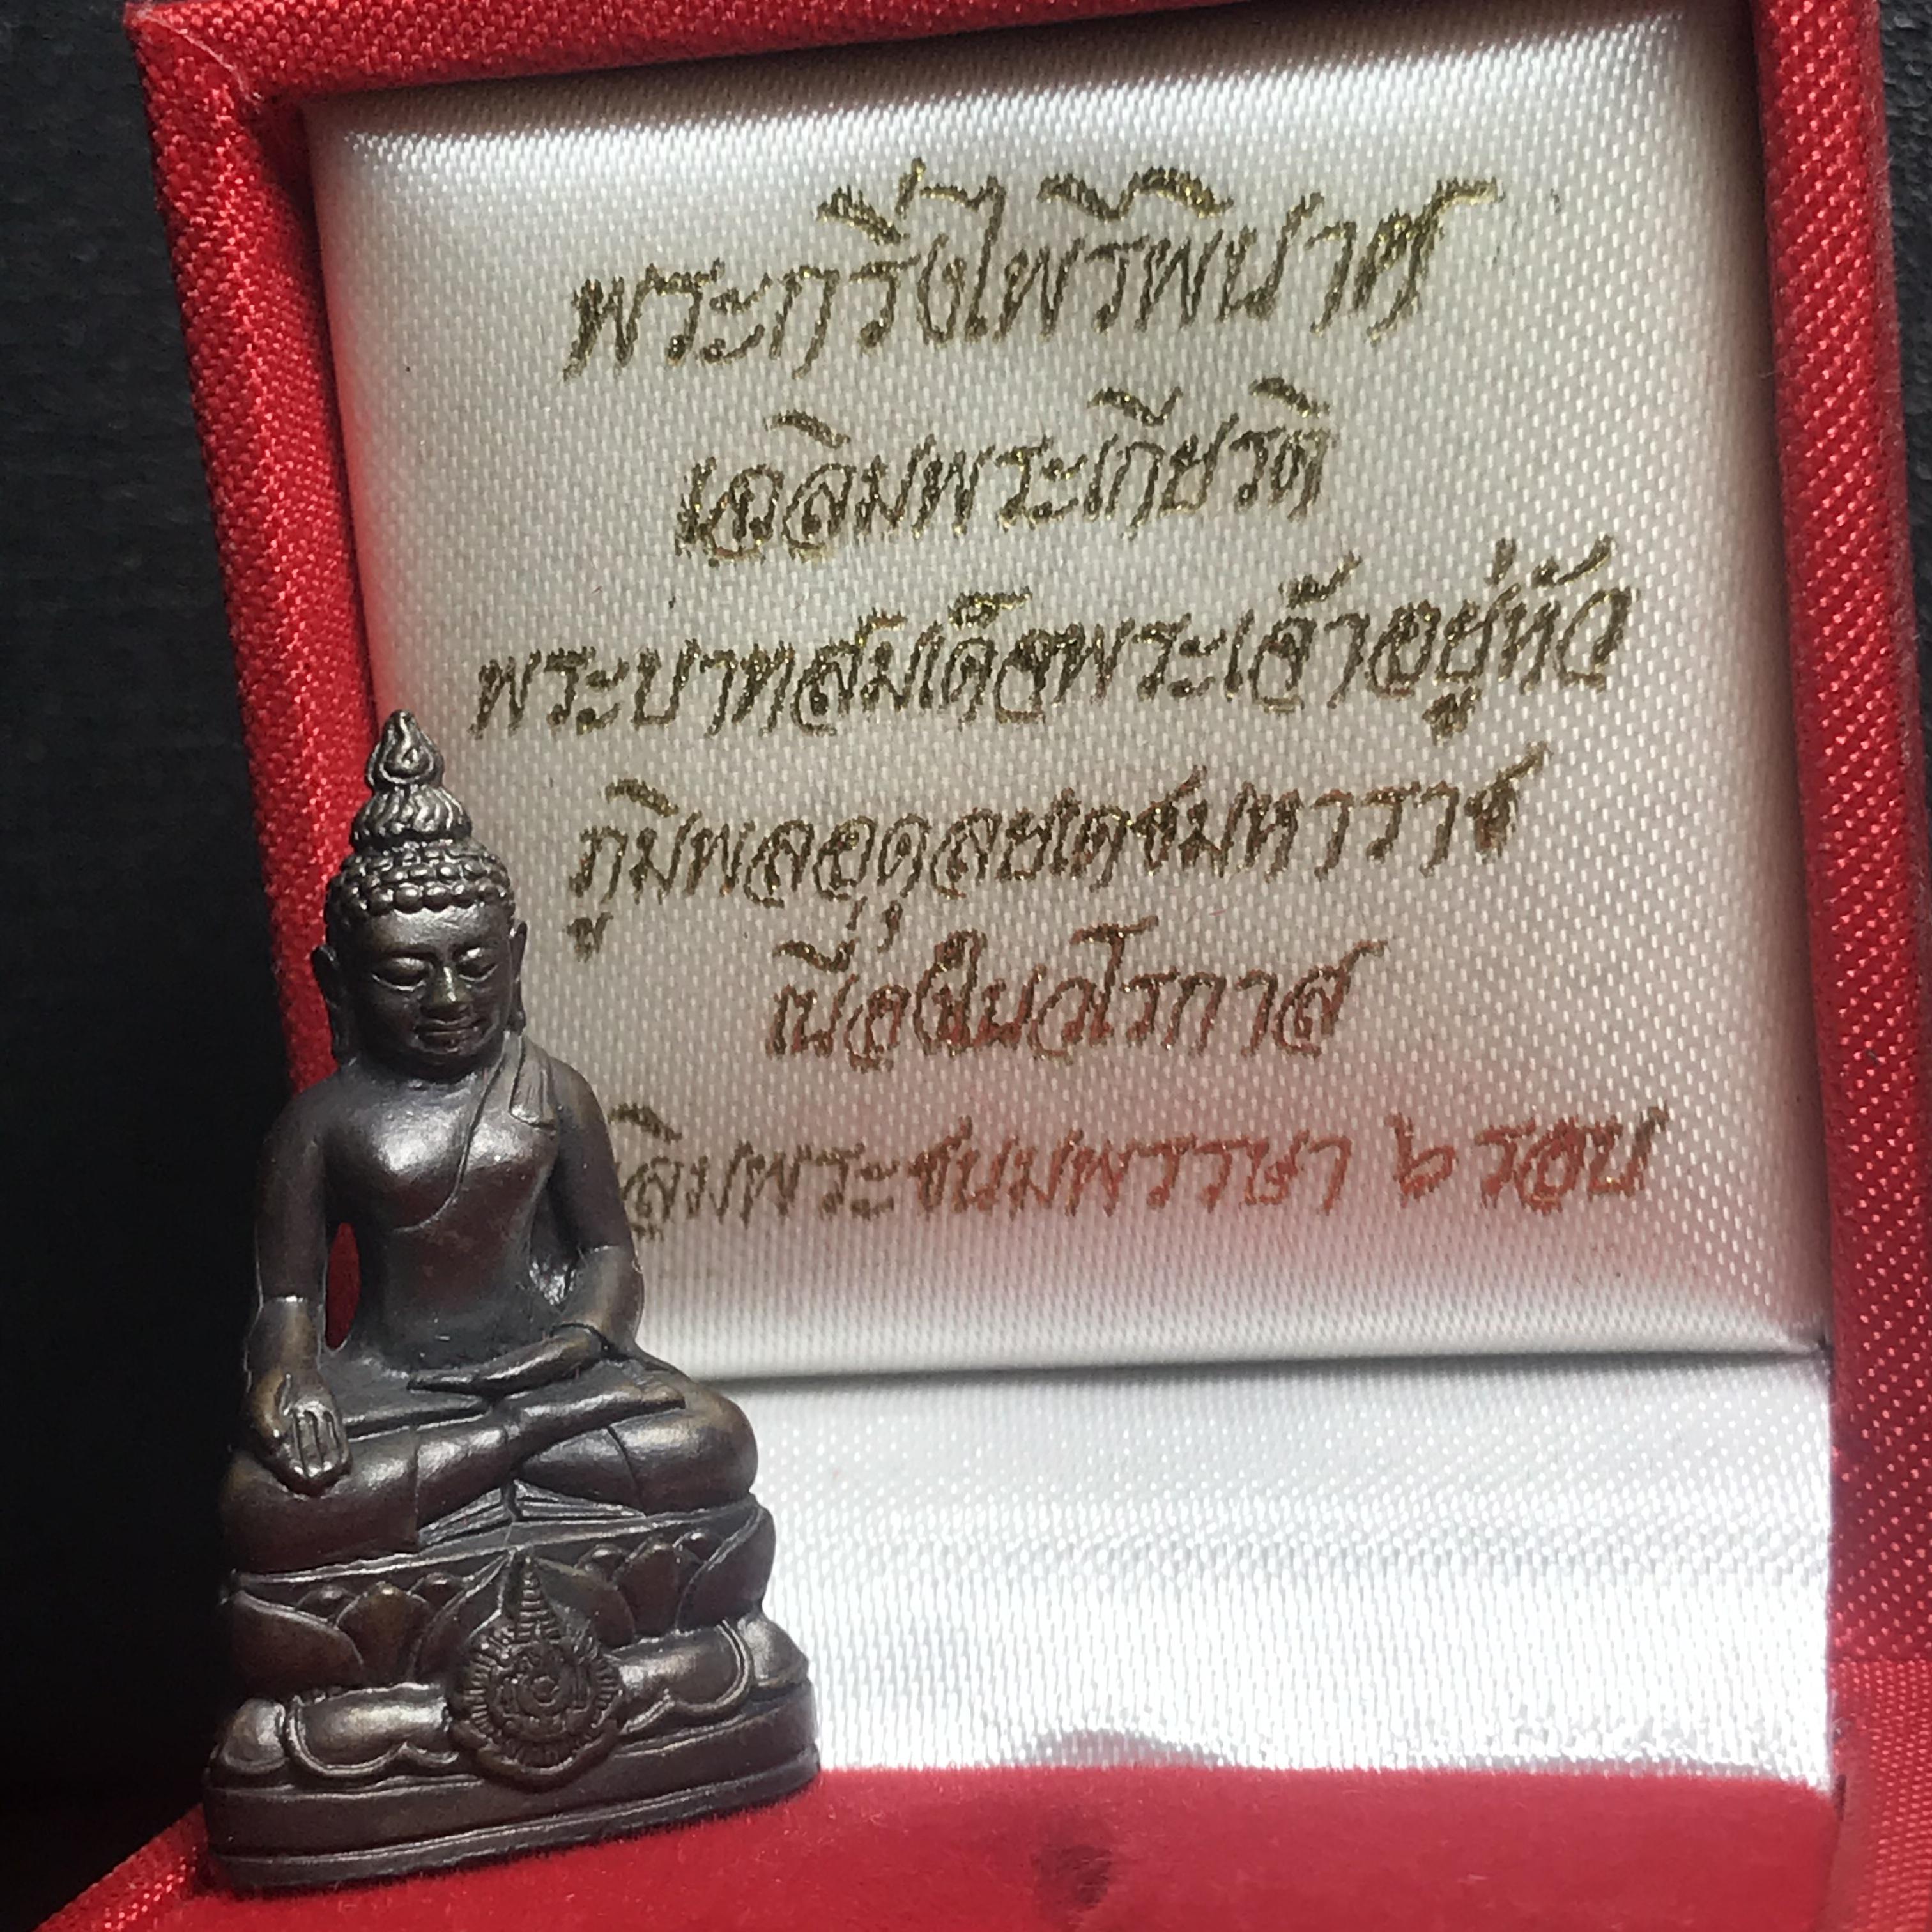 พระกริ่งไพรีพินาศ
เฉลิมพระเกียรติ
พระบาทสมเด็จพระเจ้าอยู่หัว
ภูมิพลอดุลยเดชมหาราช
เนื่องในวโรกาส
ลิมพระชนมพรรษา ๖ รอบ